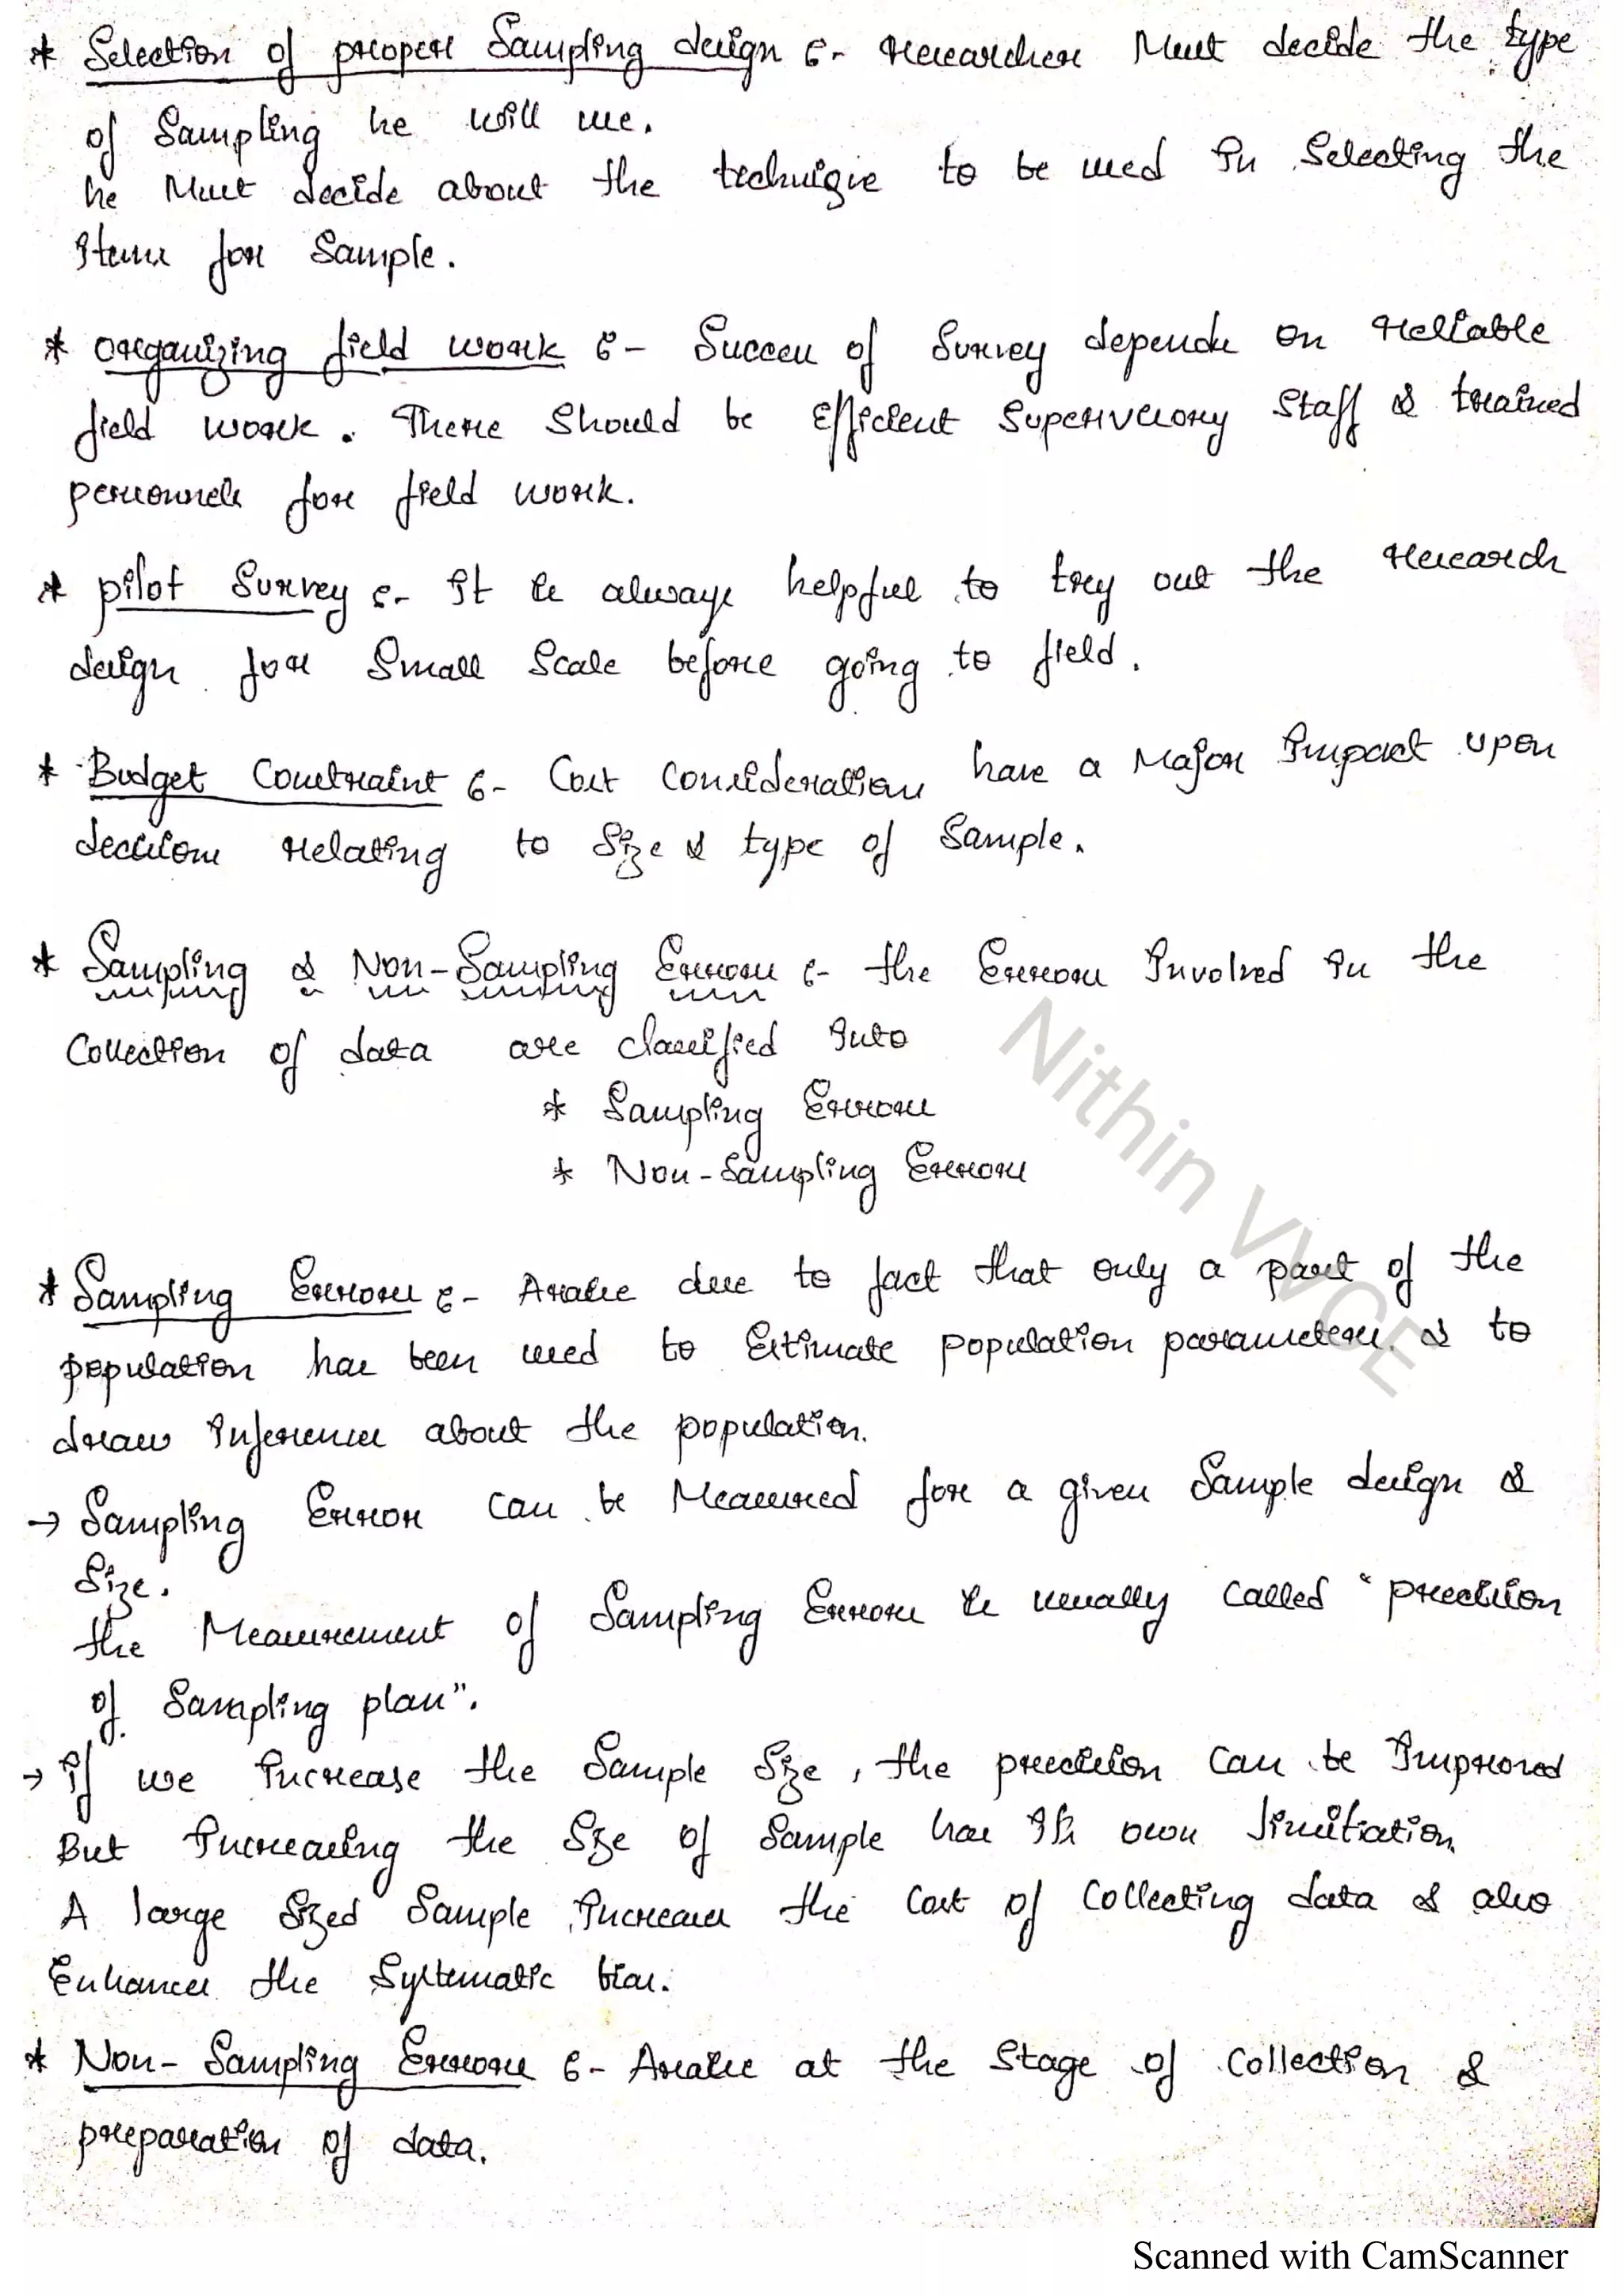 * Selection of proper Sampling design :- Researcher Must decide the type
of Sampling he will use.
he Must decide about the technique to be used in Selecting the
items for Sample.
* organizing field work :- Success of Survey depends on reliable
field work. There Should be Efficient Supervisory Staff & trained
personnels for field work.
* pilot Survey :- It is always helpful to try out the research
design for Small Scale before going to field.
* Budget Constraint :- Cost Consideration have a Major Impact upon
decisions relating to Size & type of Sample.
* Sampling & Non-Sampling Errors :- the Errors Involved in the
Collection of data are classified into
* Sampling Errors
* Non-Sampling Errors
* Sampling Errors :- Araise due to fact that only a part of the
population has been used to Estimate population parameters & to
draw inferences about the population.
→ Sampling Error can be Measured for a given Sample design &
Size.
the Measurement of Sampling Errors is usually called "precision
of Sampling plan".
→ If we increase the Sample Size, the precision can be Improved
But increasing the Size of Sample has its own limitation.
A large Sized Sample increases the Cost of Collecting data & also
Enhances the Systematic bias.
* Non-Sampling Errors :- Araise at the Stage of Collection &
preparation of data.
Nithin VVCE
Scanned with CamScanner